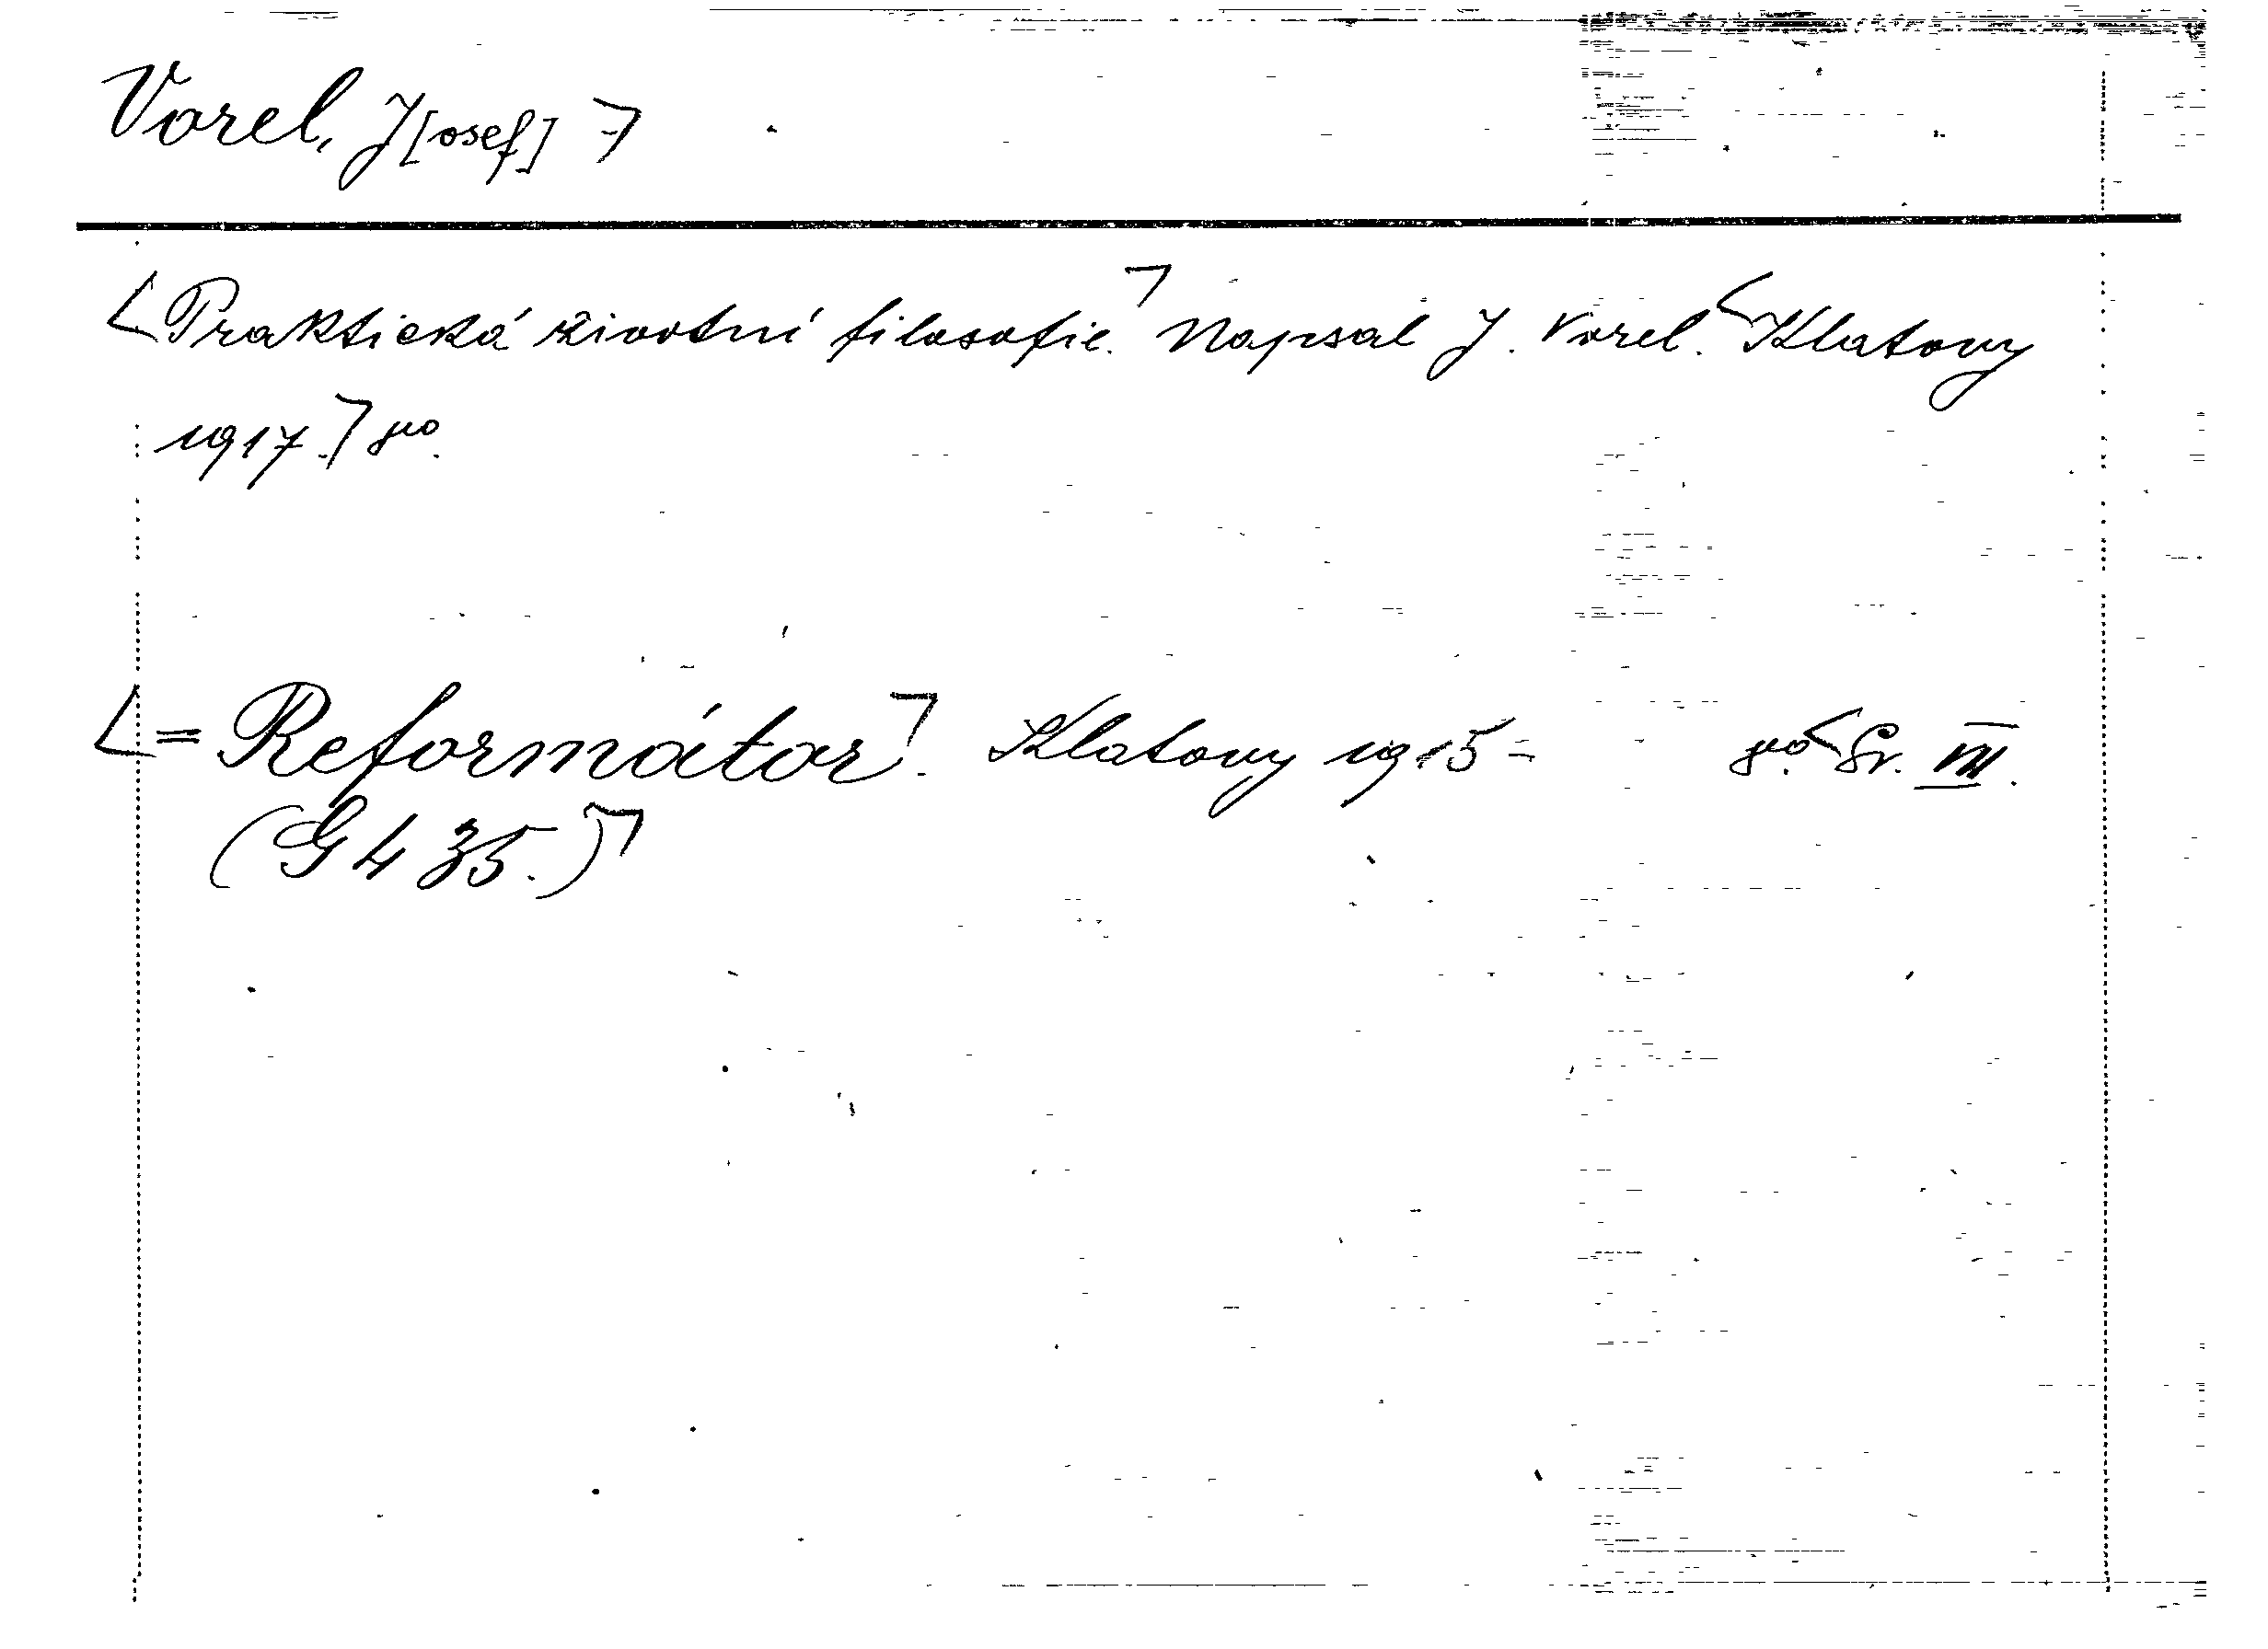 Vorel, J[osef]
Praktická životní filosofie. Napsal J. Vorel. Klatovy
1917. 8°.
= Reformátor. Klatovy 1915 = 8°. Sv. VII.
(G 4 35.)